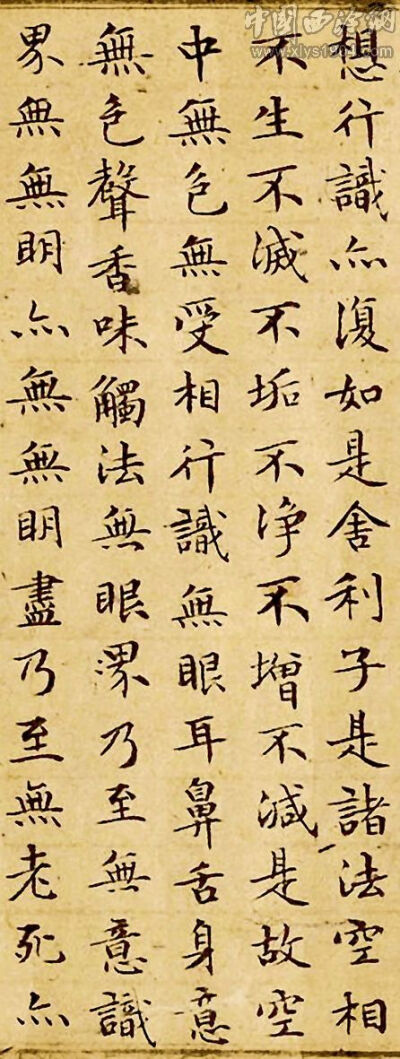 想行識亦復如是舍利子是諸法空相
不生不滅不垢不净不增不減是故空
中無色無受相行識無眼耳鼻舌身意
無色聲香味觸法無眼界乃至無意識
界無無明亦無無明盡乃至無老死亦
中国西泠網
www.xlys1904.com